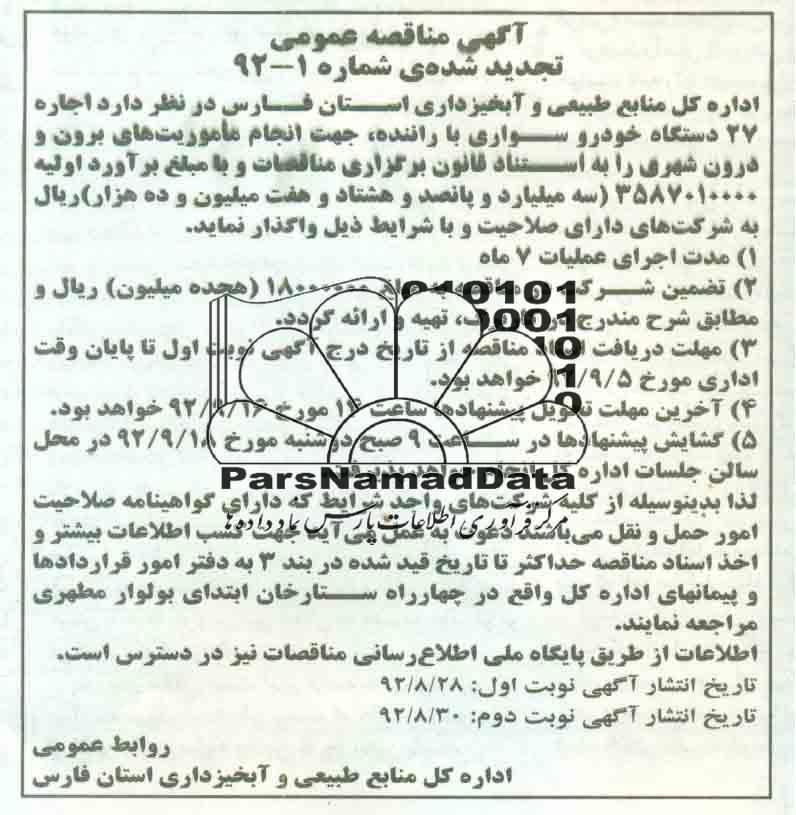 آگهی مناقصه عمومی
تجدید شده‌ی شماره ۱-۹۲
اداره کل منابع طبیعی و آبخیزداری استان فارس در نظر دارد اجاره
۲۷ دستگاه خودرو سواری با راننده، جهت انجام مأموریت‌های برون و
درون شهری را به استناد قانون برگزاری مناقصات و با مبلغ برآورد اولیه
۳۵۸۷۰۱۰۰۰۰ (سه میلیارد و پانصد و هشتاد و هفت میلیون و ده هزار)ریال
به شرکت‌های دارای صلاحیت و با شرایط ذیل واگذار نماید.
۱) مدت اجرای عملیات ۷ ماه
۲) تضمین شرکت در مناقصه به مبلغ ۱۸۰۰۰۰۰۰ (هجده میلیون) ریال و
مطابق شرح مندرج در تهیه و ارائه گردد.
۳) مهلت دریافت اسناد مناقصه از تاریخ درج آگهی نوبت اول تا پایان وقت
اداری مورخ ۹۲/۹/۵ خواهد بود.
۴) آخرین مهلت تحویل پیشنهادها ساعت ۱۴ مورخ ۹۲/۹/۱۶ خواهد بود.
۵) گشایش پیشنهادها در ساعت ۹ صبح دوشنبه مورخ ۹۲/۹/۱۸ در محل
سالن جلسات اداره کل انجام خواهد پذیرفت.
ParsNamadData
مرکز فرآوری اطلاعات پارس نماد داده ها
لذا بدینوسیله از کلیه شرکت‌های واجد شرایط که دارای گواهینامه صلاحیت
امور حمل و نقل می‌باشند دعوت به عمل می آید جهت کسب اطلاعات بیشتر و
اخذ اسناد مناقصه حداکثر تا تاریخ قید شده در بند ۳ به دفتر امور قراردادها
و پیمانهای اداره کل واقع در چهارراه ستارخان ابتدای بولوار مطهری
مراجعه نمایند.
اطلاعات از طریق پایگاه ملی اطلاع‌رسانی مناقصات نیز در دسترس است.
تاریخ انتشار آگهی نوبت اول: ۹۲/۸/۲۸
تاریخ انتشار آگهی نوبت دوم: ۹۲/۸/۳۰
روابط عمومی
اداره کل منابع طبیعی و آبخیزداری استان فارس